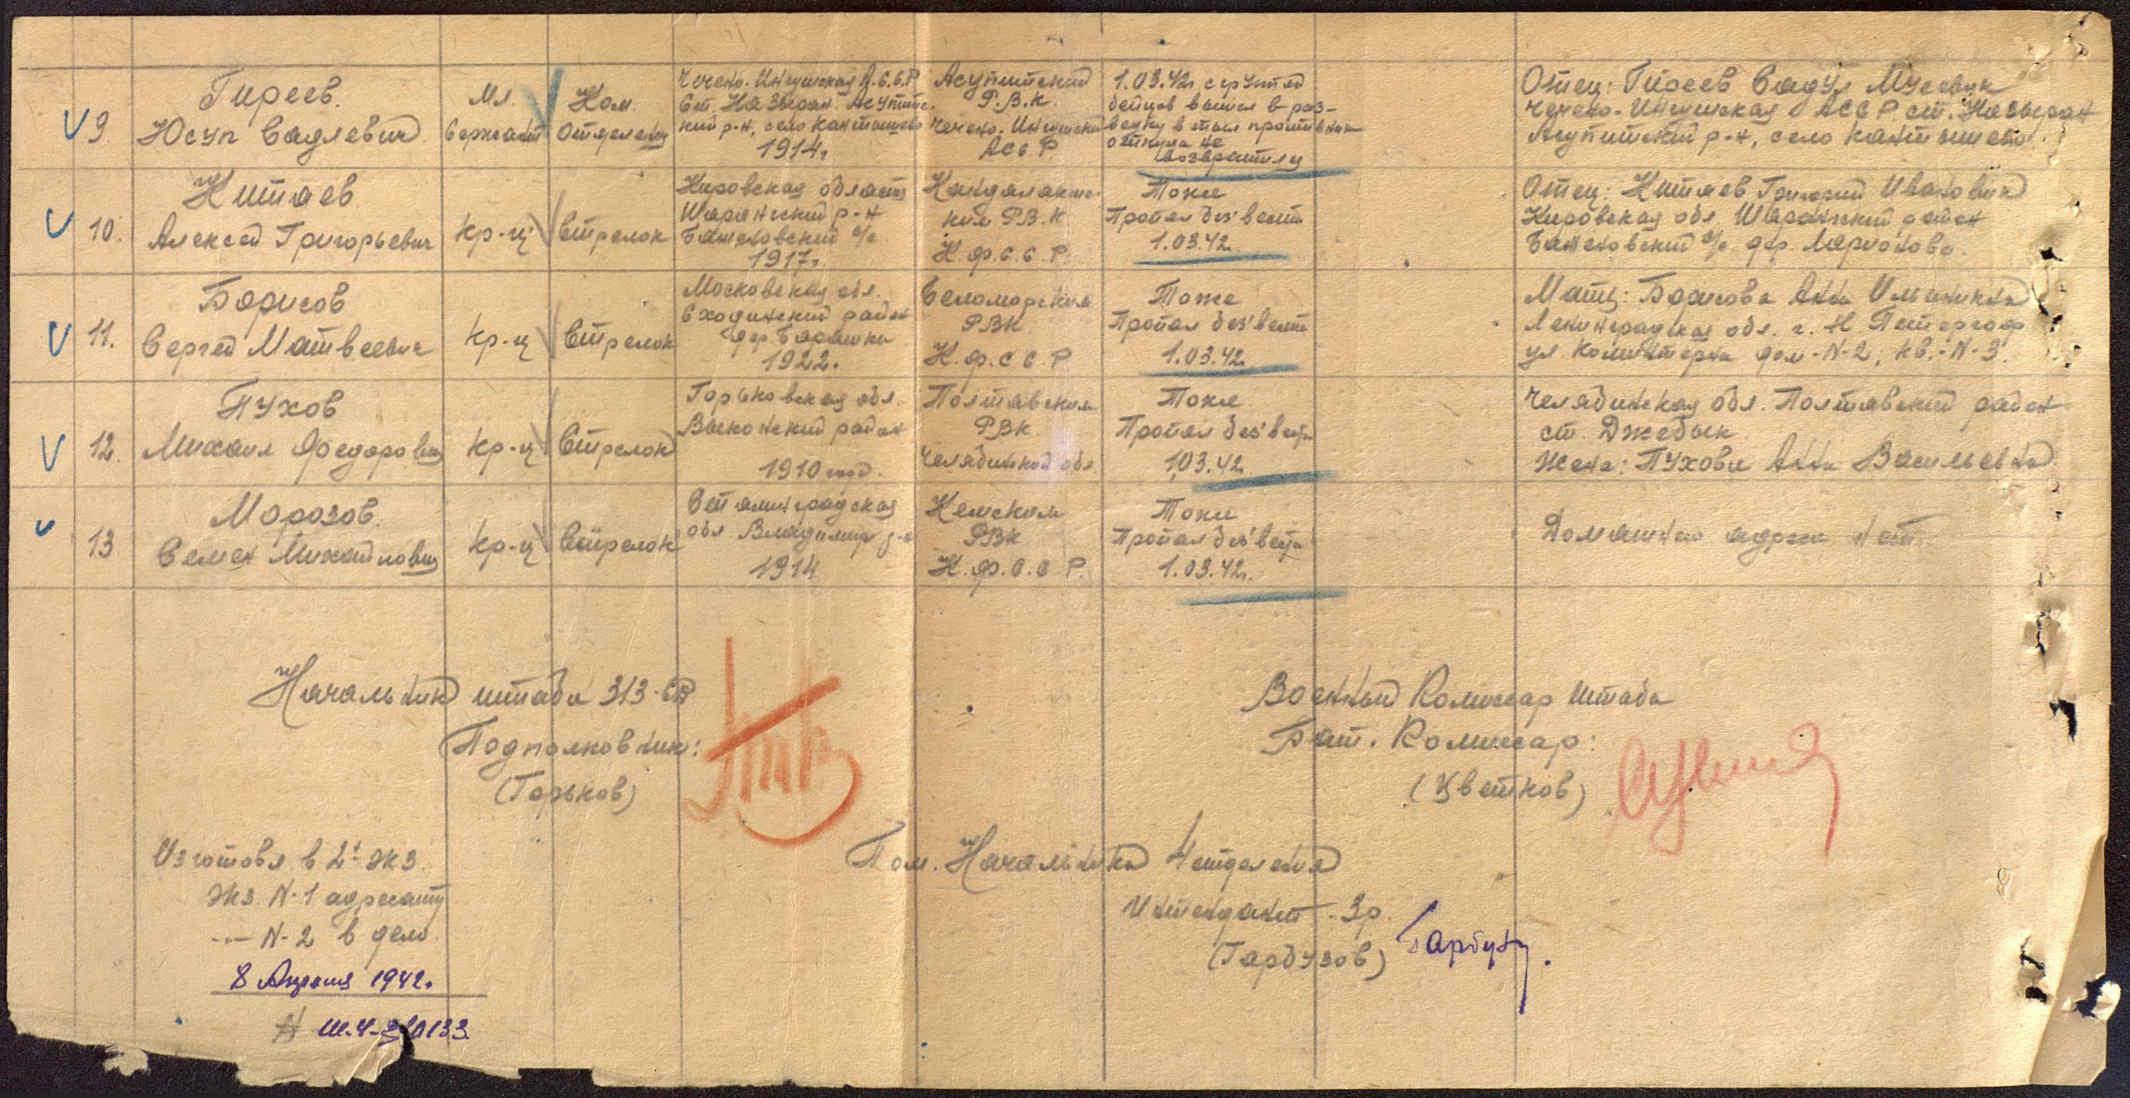 9. Гиреев
Юсуп Садлевич
Мл.
Сержант
Ком.
Отделения
Чечено-Ингушская А.С.С.Р.
Ст. Назыран. Асутинс-
кий р-н, село Кантышево
1914г.
Асупитский
Р.В.К.
Чечено-Ингушский
АССР
1.03.42г. с группой
бойцов вышел в раз-
ведку в тыл противника
откуда не
возвратился
Отец: Гиреев Садул Мусевич
Чечено-Ингушская АССР ст. Назыран
Асупитский р-н, село Кантышево
10. Китаев
Алексей Григорьевич
кр-ц
Стрелок
Кировская область
Шарангский р-н
Башеловский с/с
1917г.
Кандалакшс-
ким РВК
К.Ф.С.С.Р.
Тоже
Пропал без вести
1.03.42
Отец: Китаев Григорий Иванович
Кировская обл. Шарангский район
с/с. дер.
11. Борисов
Сергей Матвеевич
кр-ц
Стрелок
Московская обл.
район
дер.
1922г.
Беломорским
РВК
К.Ф.С.С.Р.
Тоже
Пропал без вести
1.03.42
Мать: Борисова Анна
Ленинградская обл. г. Н Петергоф
ул. Коминтерна дом-N-2, кв.-N-3.
12. Пухов
Михаил Федорович
кр-ц
Стрелок
Горьковская обл.
Выксонский район
1910 год.
Полтавским
РВК
Челябинской обл
Тоже
Пропал без вести
1.03.42
Челябинская обл. Полтавский район
ст. Джебык
Жена: Пухова Анна Васильевна
13 Морозов
Семен Михайлович
кр-ц
Стрелок
Сталинградская
обл Владимир р-н
1914
Кемским
РВК
К.Ф.С.С.Р.
Тоже
Пропал без вести
1.03.42г.
Домашнего адреса нет
Начальник штаба 313-СД
Подполковник:
(Горьков)
Военный Комиссар Штаба
Бат. Комиссар:
(Цветков)
Изготовл в 2х экз.
экз N-1 адресату
-"- N-2 в дело
8 Апреля 1942г.
N Ш.4-3/0133
Пом. Начальника 4 отделения
Интендант-3р.
(Гарбузов)